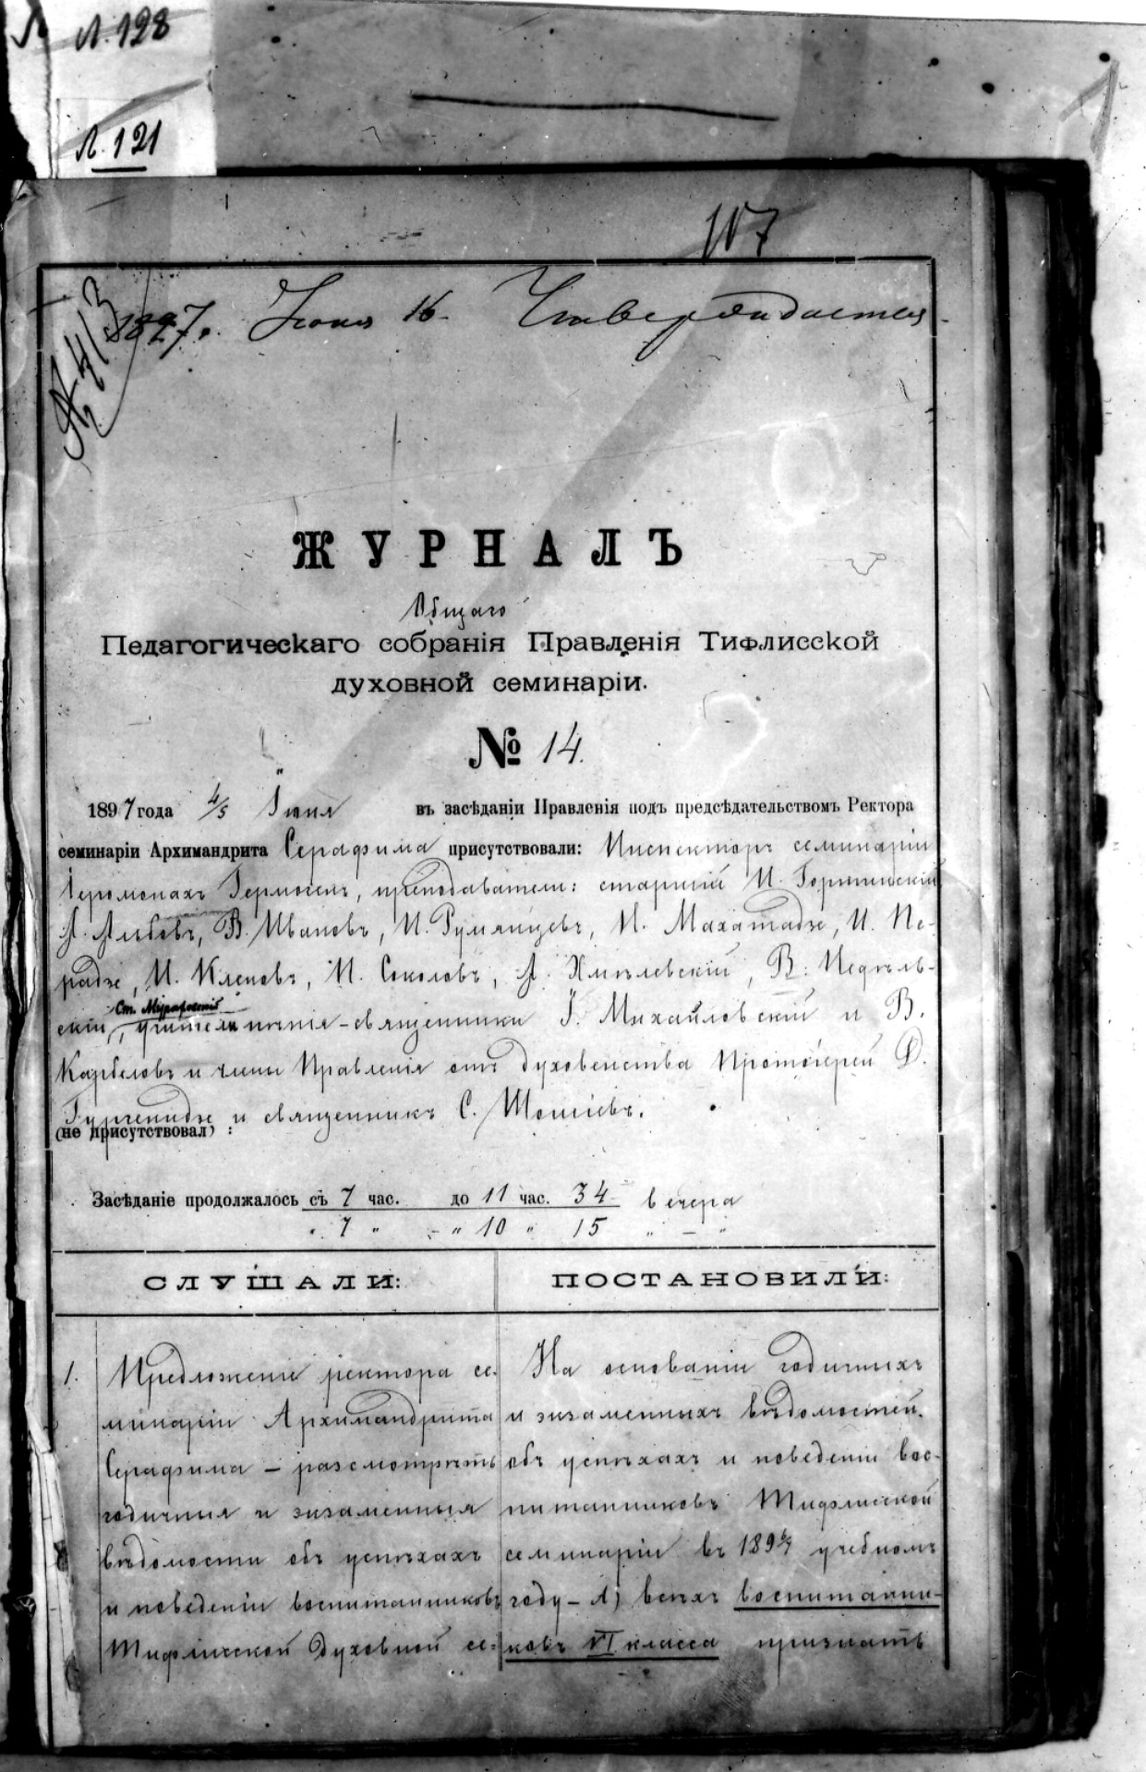 Л. 128
Л. 121
107
№ 413
1897 г. Июня 16. Утверждается.
ЖУРНАЛЪ
Общаго
Педагогическаго собранія Правленія Тифлисской
духовной семинаріи.
№ 14.
1897 года 4/5 Іюня въ засѣданіи Правленія подъ предсѣдательствомъ Ректора
семинаріи Архимандрита Серафима присутствовали: Инспекторъ семинаріи
Іеромонахъ Гермогенъ, преподаватели: старшій И.
В. Ивановъ, И. Румянцевъ, И. Махатадзе, И. Пе-
радзе, И. Клеповъ, И. Соколовъ, А. Хмѣлевскій, В. Недѣль-
скій, учителя пѣнія – священники І. Михайловскій и В.
Карбеловъ и члены Правленія отъ духовенства Протоіерей Д.
и священникъ С. Шошіевъ.
(не присутствовал) :
Засѣданіе продолжалось съ 7 час. до 11 час. 34 вечера
" 7 " – " 10 " 15 " – "
СЛУШАЛИ: ПОСТАНОВИЛИ:
1. Предложеніе ректора се-
минаріи Архимандрита
Серафима – разсмотрѣть
годичныя и экзаменныя
вѣдомости объ успѣхахъ
и поведеніи воспитанниковъ
Тифлисской духовной се-
На основаніи годичныхъ
и экзаменныхъ вѣдомостей
объ успѣхахъ и поведеніи вос-
питанниковъ Тифлисской
семинаріи въ 1896/7 учебномъ
году – А) всѣхъ воспитанни-
ковъ VI класса признать